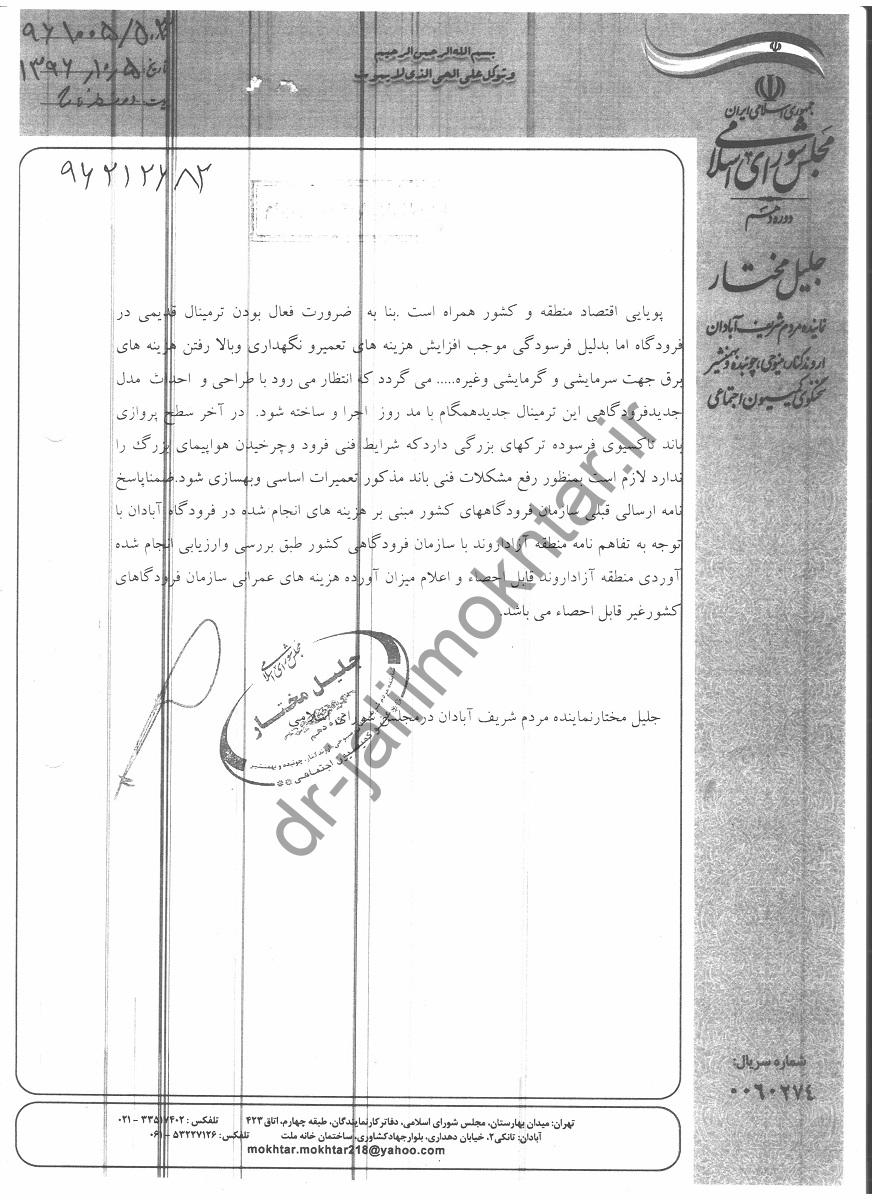 بسم الله الرحمن الرحیم
وتوکل علی الحی الذی لا یموت
جمهوری اسلامی ایران
مجلس شورای اسلامی
دوره دهم
جلیل مختار
نماینده مردم شریف آبادان
اروندکنار، مینوحی، چوئبده و بهمنشیر
سخنگوی کمیسیون اجتماعی
۹۶۲۱۲۶۸۲
پویایی اقتصاد منطقه و کشور همراه است .بنا به ضرورت فعال بودن ترمینال قدیمی در
فرودگاه اما بدلیل فرسودگی موجب افزایش هزینه های تعمیرو نگهداری وبالا رفتن هزینه های
برق جهت سرمایشی و گرمایشی وغیره..... می گردد که انتظار می رود با طراحی و احداث مدل
جدیدفرودگاهی این ترمینال جدیدهمگام با مد روز اجرا و ساخته شود. در آخر سطح پروازی
باند تاکسیوی فرسوده ترکهای بزرگی داردکه شرایط فنی فرود وچرخیدن هواپیمای بزرگ را
ندارد لازم است بمنظور رفع مشکلات فنی باند مذکور تعمیرات اساسی وبهسازی شود.ضمناپاسخ
نامه ارسالی قبلی سازمان فرودگاههای کشور مبنی بر هزینه های انجام شده در فرودگاه آبادان با
توجه به تفاهم نامه منطقه آزاداروند با سازمان فرودگاهی کشور طبق بررسی وارزیابی انجام شده
آوردی منطقه آزاداروند قابل احصاء و اعلام میزان آورده هزینه های عمرانی سازمان فرودگاهای
کشورغیر قابل احصاء می باشد.
جلیل مختارنماینده مردم شریف آبادان در مجلس شورای اسلامی
مجلس شورای اسلامی
جلیل مختار
دوره دهم
dr-jalilmokhtar.ir
شماره سریال:
۰۰۶۰۲۷۴
تهران: میدان بهارستان، مجلس شورای اسلامی، دفاتر کار نمایندگان، طبقه چهارم، اتاق ۴۲۳ تلفکس : ۳۳۵۱۷۴۰۲ – ۰۲۱
آبادان: تانکی۲، خیابان دهداری، بلوار جهاد کشاورزی، ساختمان خانه ملت تلفکس: ۵۳۲۲۷۱۲۶ – ۰۶۱
mokhtar.mokhtar218@yahoo.com